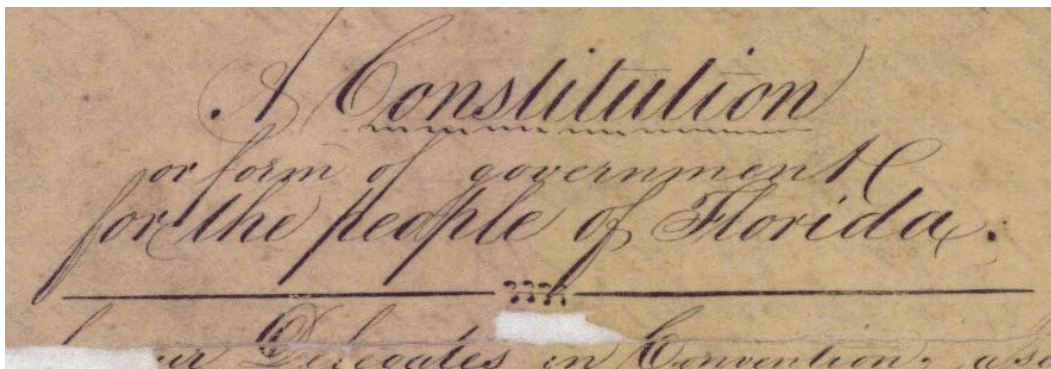 A Constitution
or form of government
for the people of Florida.
our Delegates in Convention,